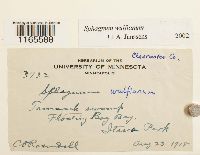 1165588
Sphagnum wulfianum
J. A. Janssens 2002
Clearwater Co.
HERBARIUM OF THE
UNIVERSITY OF MINNESOTA
MINNEAPOLIS
3732
Sphagnum wulfianum
Tamarack swamp
Floating Bog Bay,
Itasca Park
C O Rosendahl Aug 23 1918